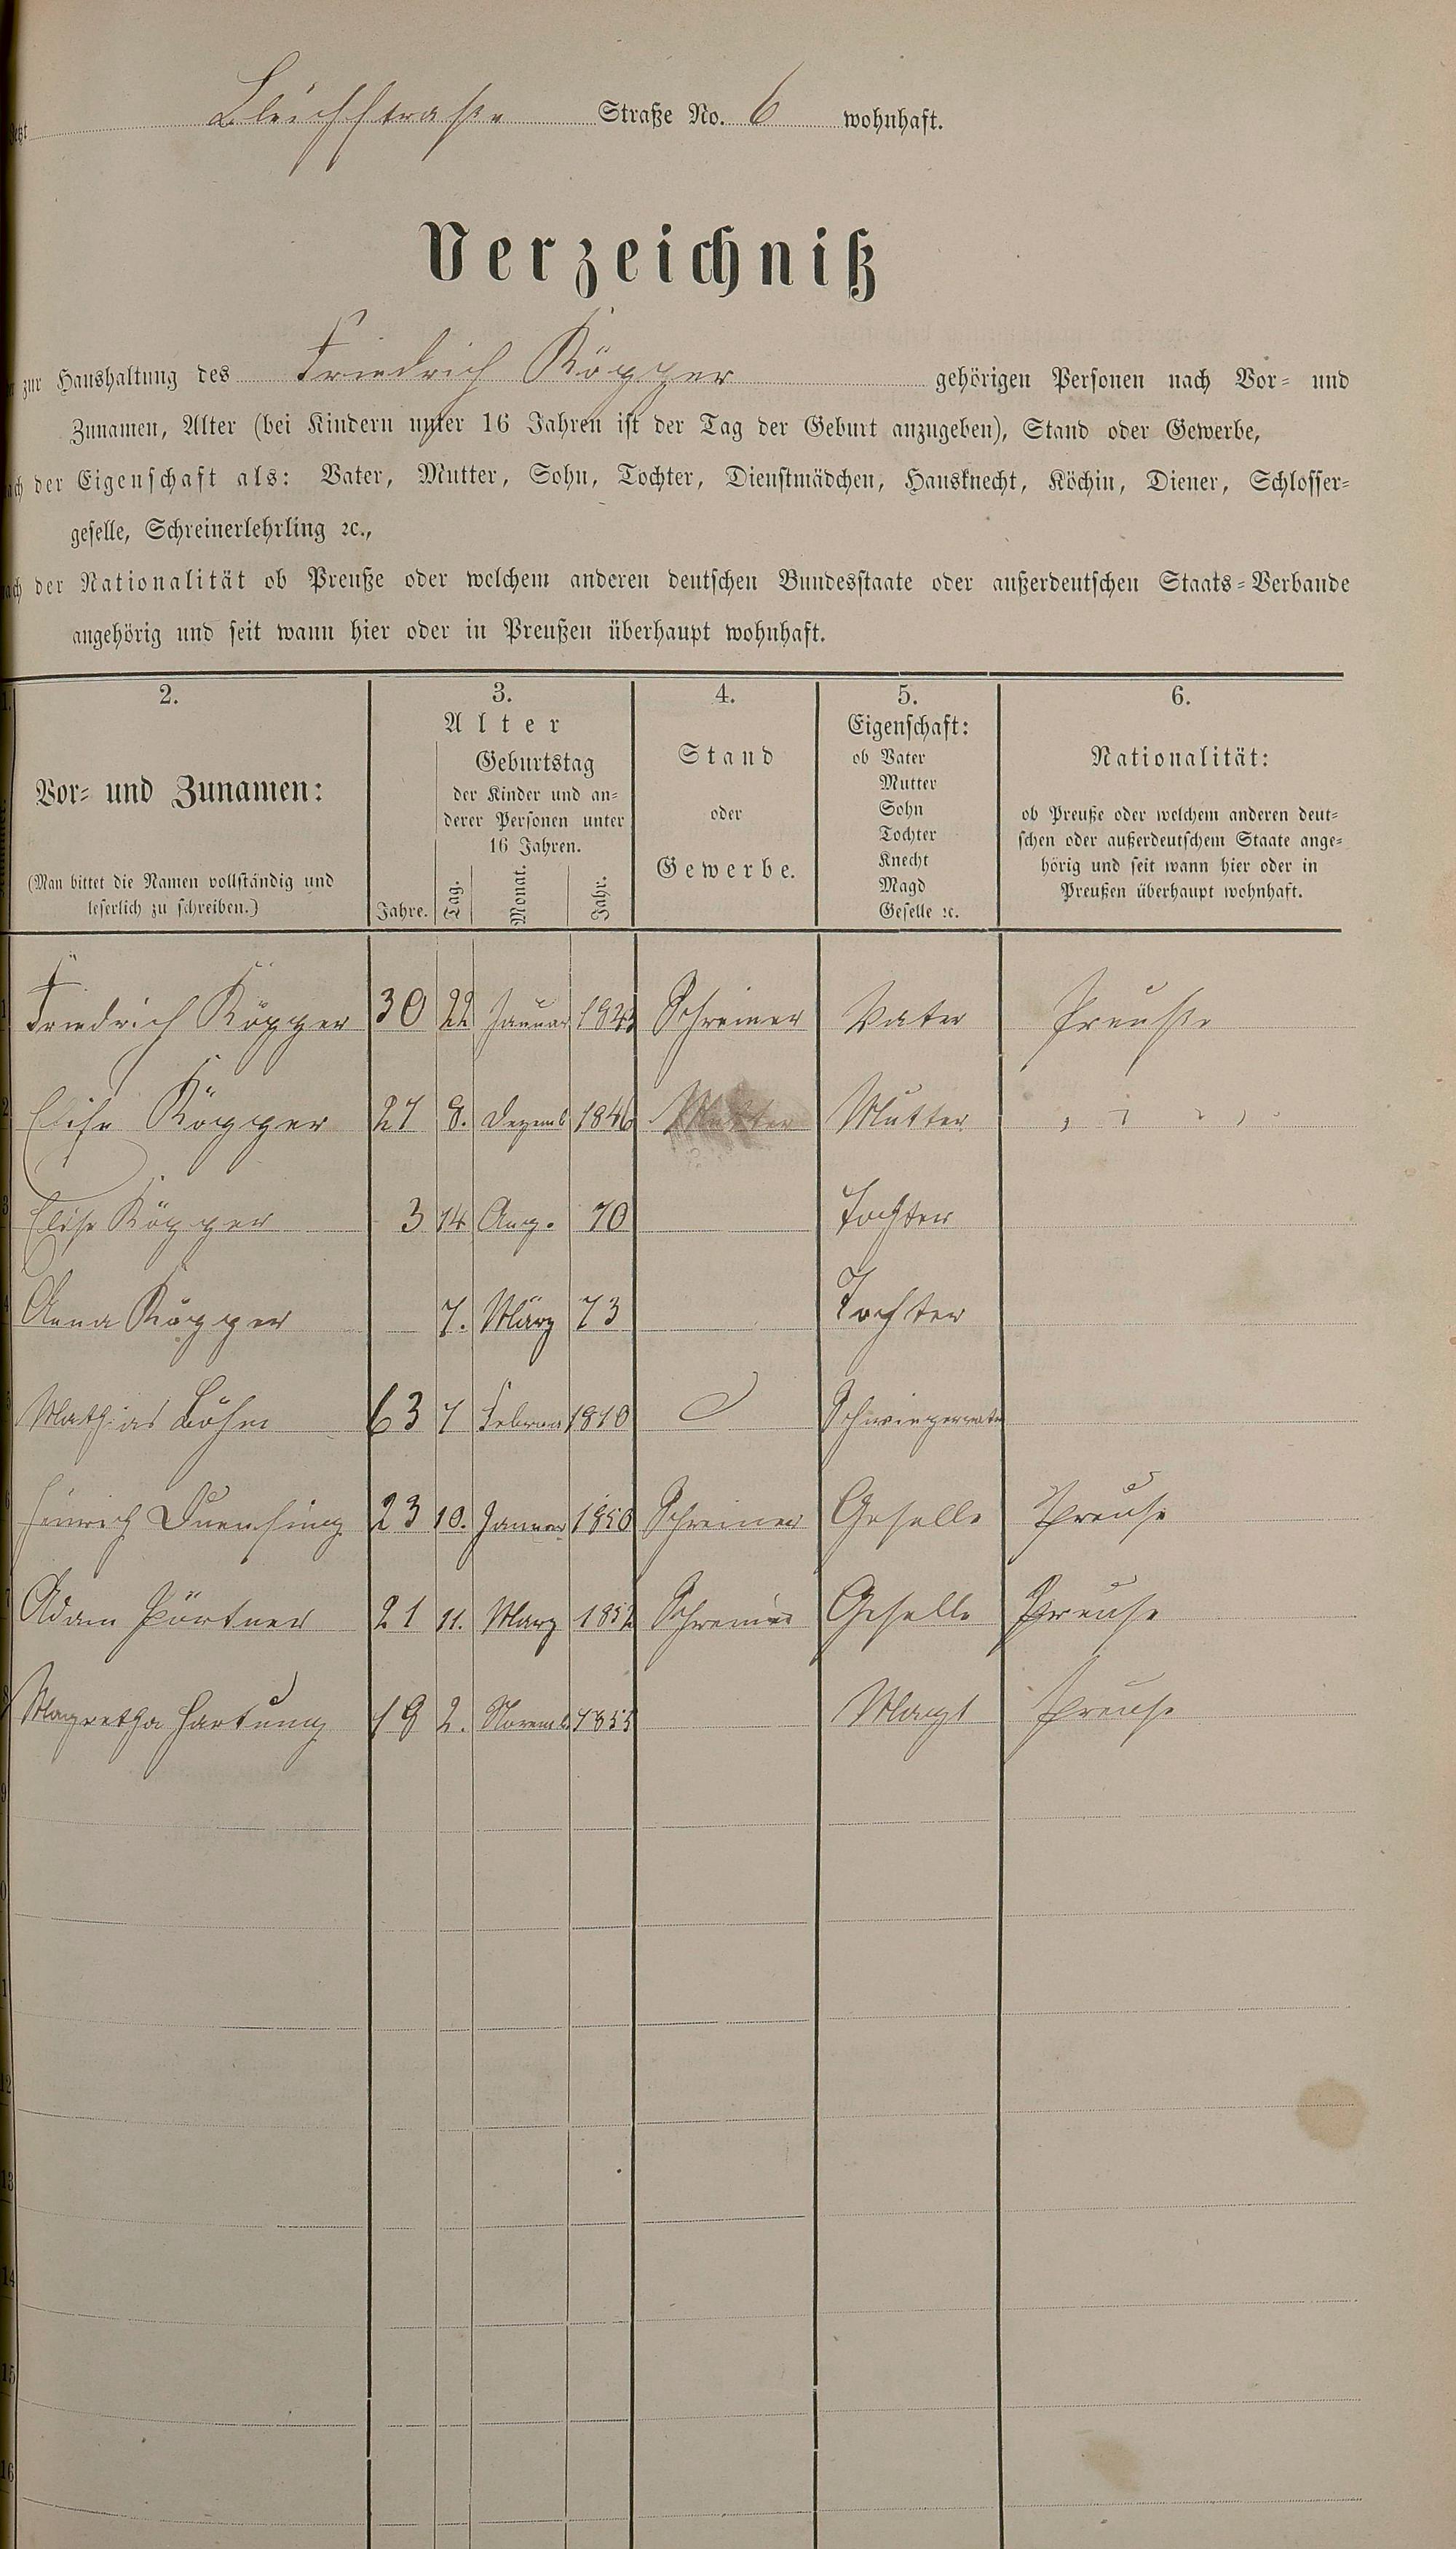 Bleichstraße Straße No. 6 wohnhaft.
Verzeichniß
zur Haushaltung des Friedrich Köpper gehörigen Personen nach Vor- und
Zunamen, Alter (bei Kindern unter 16 Jahren ist der Tag der Geburt anzugeben), Stand oder Gewerbe,
der Eigenschaft als: Vater, Mutter, Sohn, Tochter, Dienstmädchen, Hausknecht, Köchin, Diener, Schlosser-
geselle, Schreinerlehrling ꝛc.,
der Nationalität ob Preuße oder welchem anderen deutschen Bundesstaate oder außerdeutschen Staats-Verbande
angehörig und seit wann hier oder in Preußen überhaupt wohnhaft.
2. 3. 4. 5. 6.
Vor- und Zunamen:
(Man bittet die Namen vollständig und
leserlich zu schreiben.)
Alter
Geburtstag
der Kinder und an-
derer Personen unter
16 Jahren.
Jahre. Tag. Monat. Jahr.
Stand
oder
Gewerbe.
Eigenschaft:
ob Vater
Mutter
Sohn
Tochter
Knecht
Magd
Geselle ꝛc.
Nationalität:
ob Preuße oder welchem anderen deut-
schen oder außerdeutschem Staate ange-
hörig und seit wann hier oder in
Preußen überhaupt wohnhaft.
1 Friedrich Köpper 30 22 Januar 1843 Schreiner Vater Preuße
2 Elise Köpper 27 8. Dezemb 1846 Mutter
3 Elise Köpper 3 14 Aug. 70 Tochter
4 Anna Köpper 7. März 73 Tochter
Mathias Böhm 63 7 Februar 1810 Schwiegervater
6 Heinrich Duensing 23 10. Januar 1850 Schreiner Geselle Preuße
7 Adam Pörtner 21 11. März 1852 Schreiner Geselle Preuße
8 Magretha Hartung 18 2. Novemb. 1855 Magt Preuße
9
0
1
12
13
14
15
16